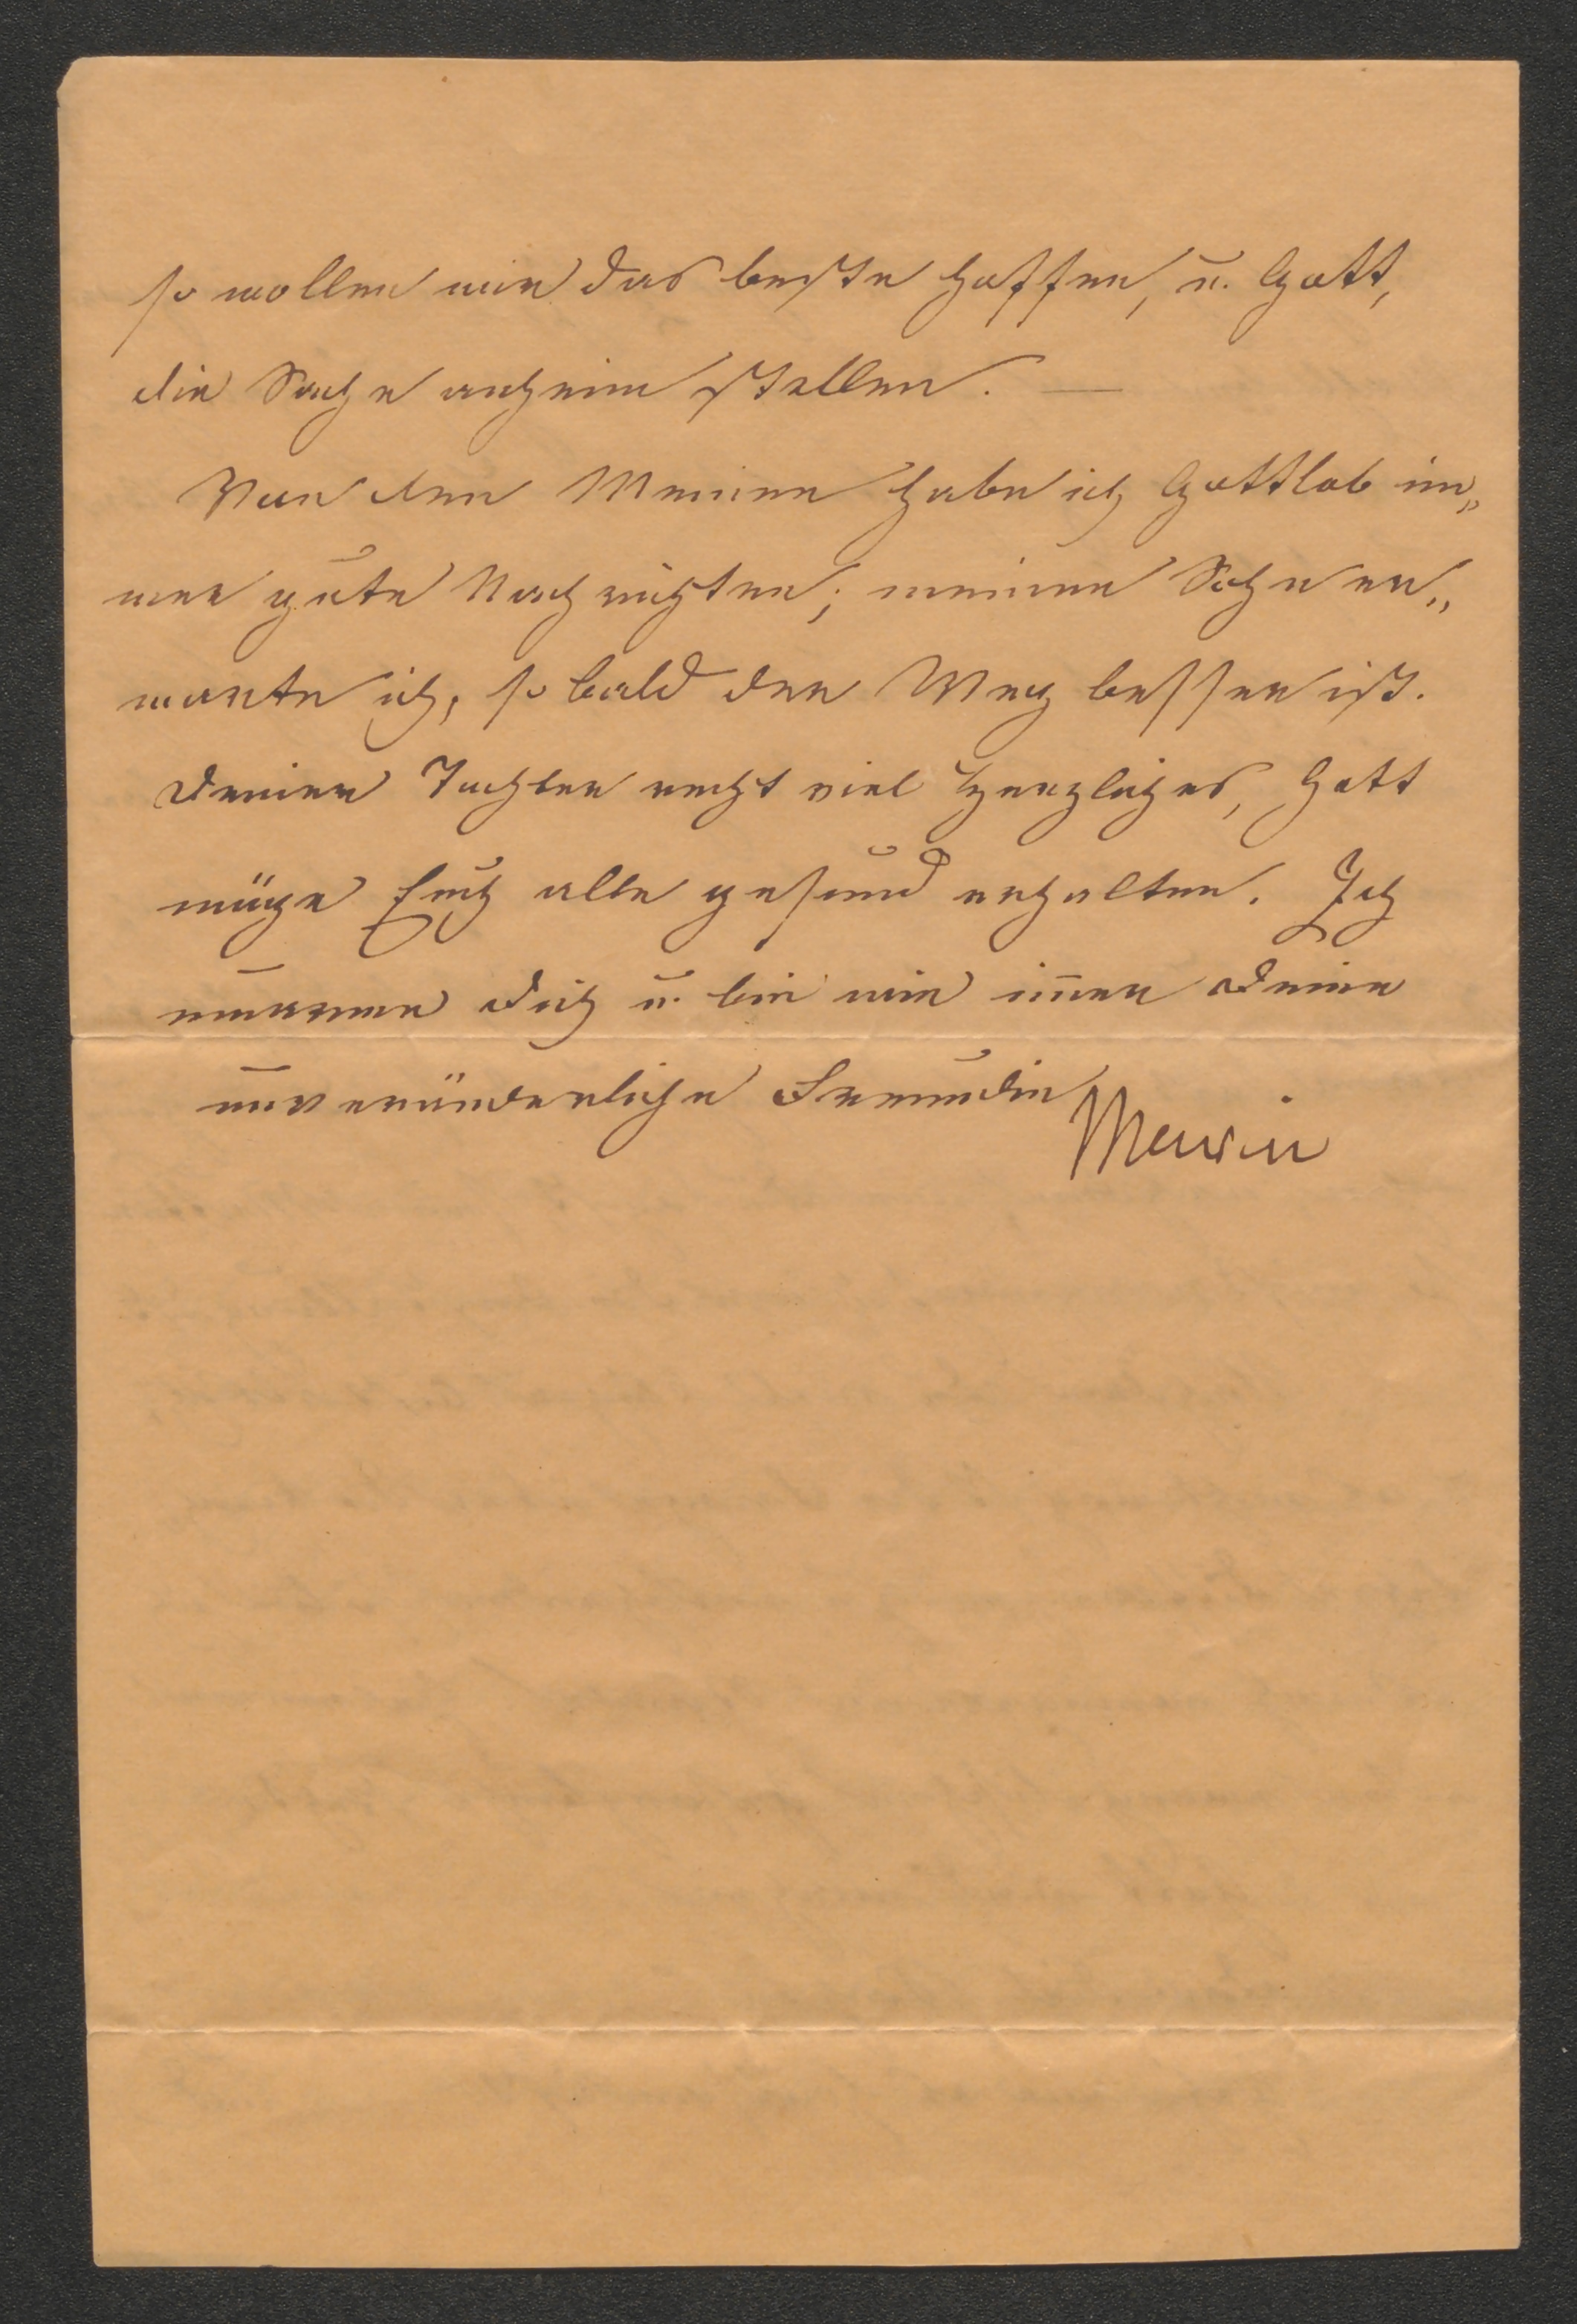 so wollen wir das beste hoffen, u. Gott,
die Sache anheim stellen. —
Von den Meinen habe ich Gottlob im„
mer gute Nachrichten; meinen Sohn er„
warte ich, so bald der Weg besser ist.
Deiner Tochter recht viel Herzliches, Gott
möge Euch alle gesund erhalten. Ich
umarme Dich u. bin wie im̄er Deine
unveränderliche Freundin